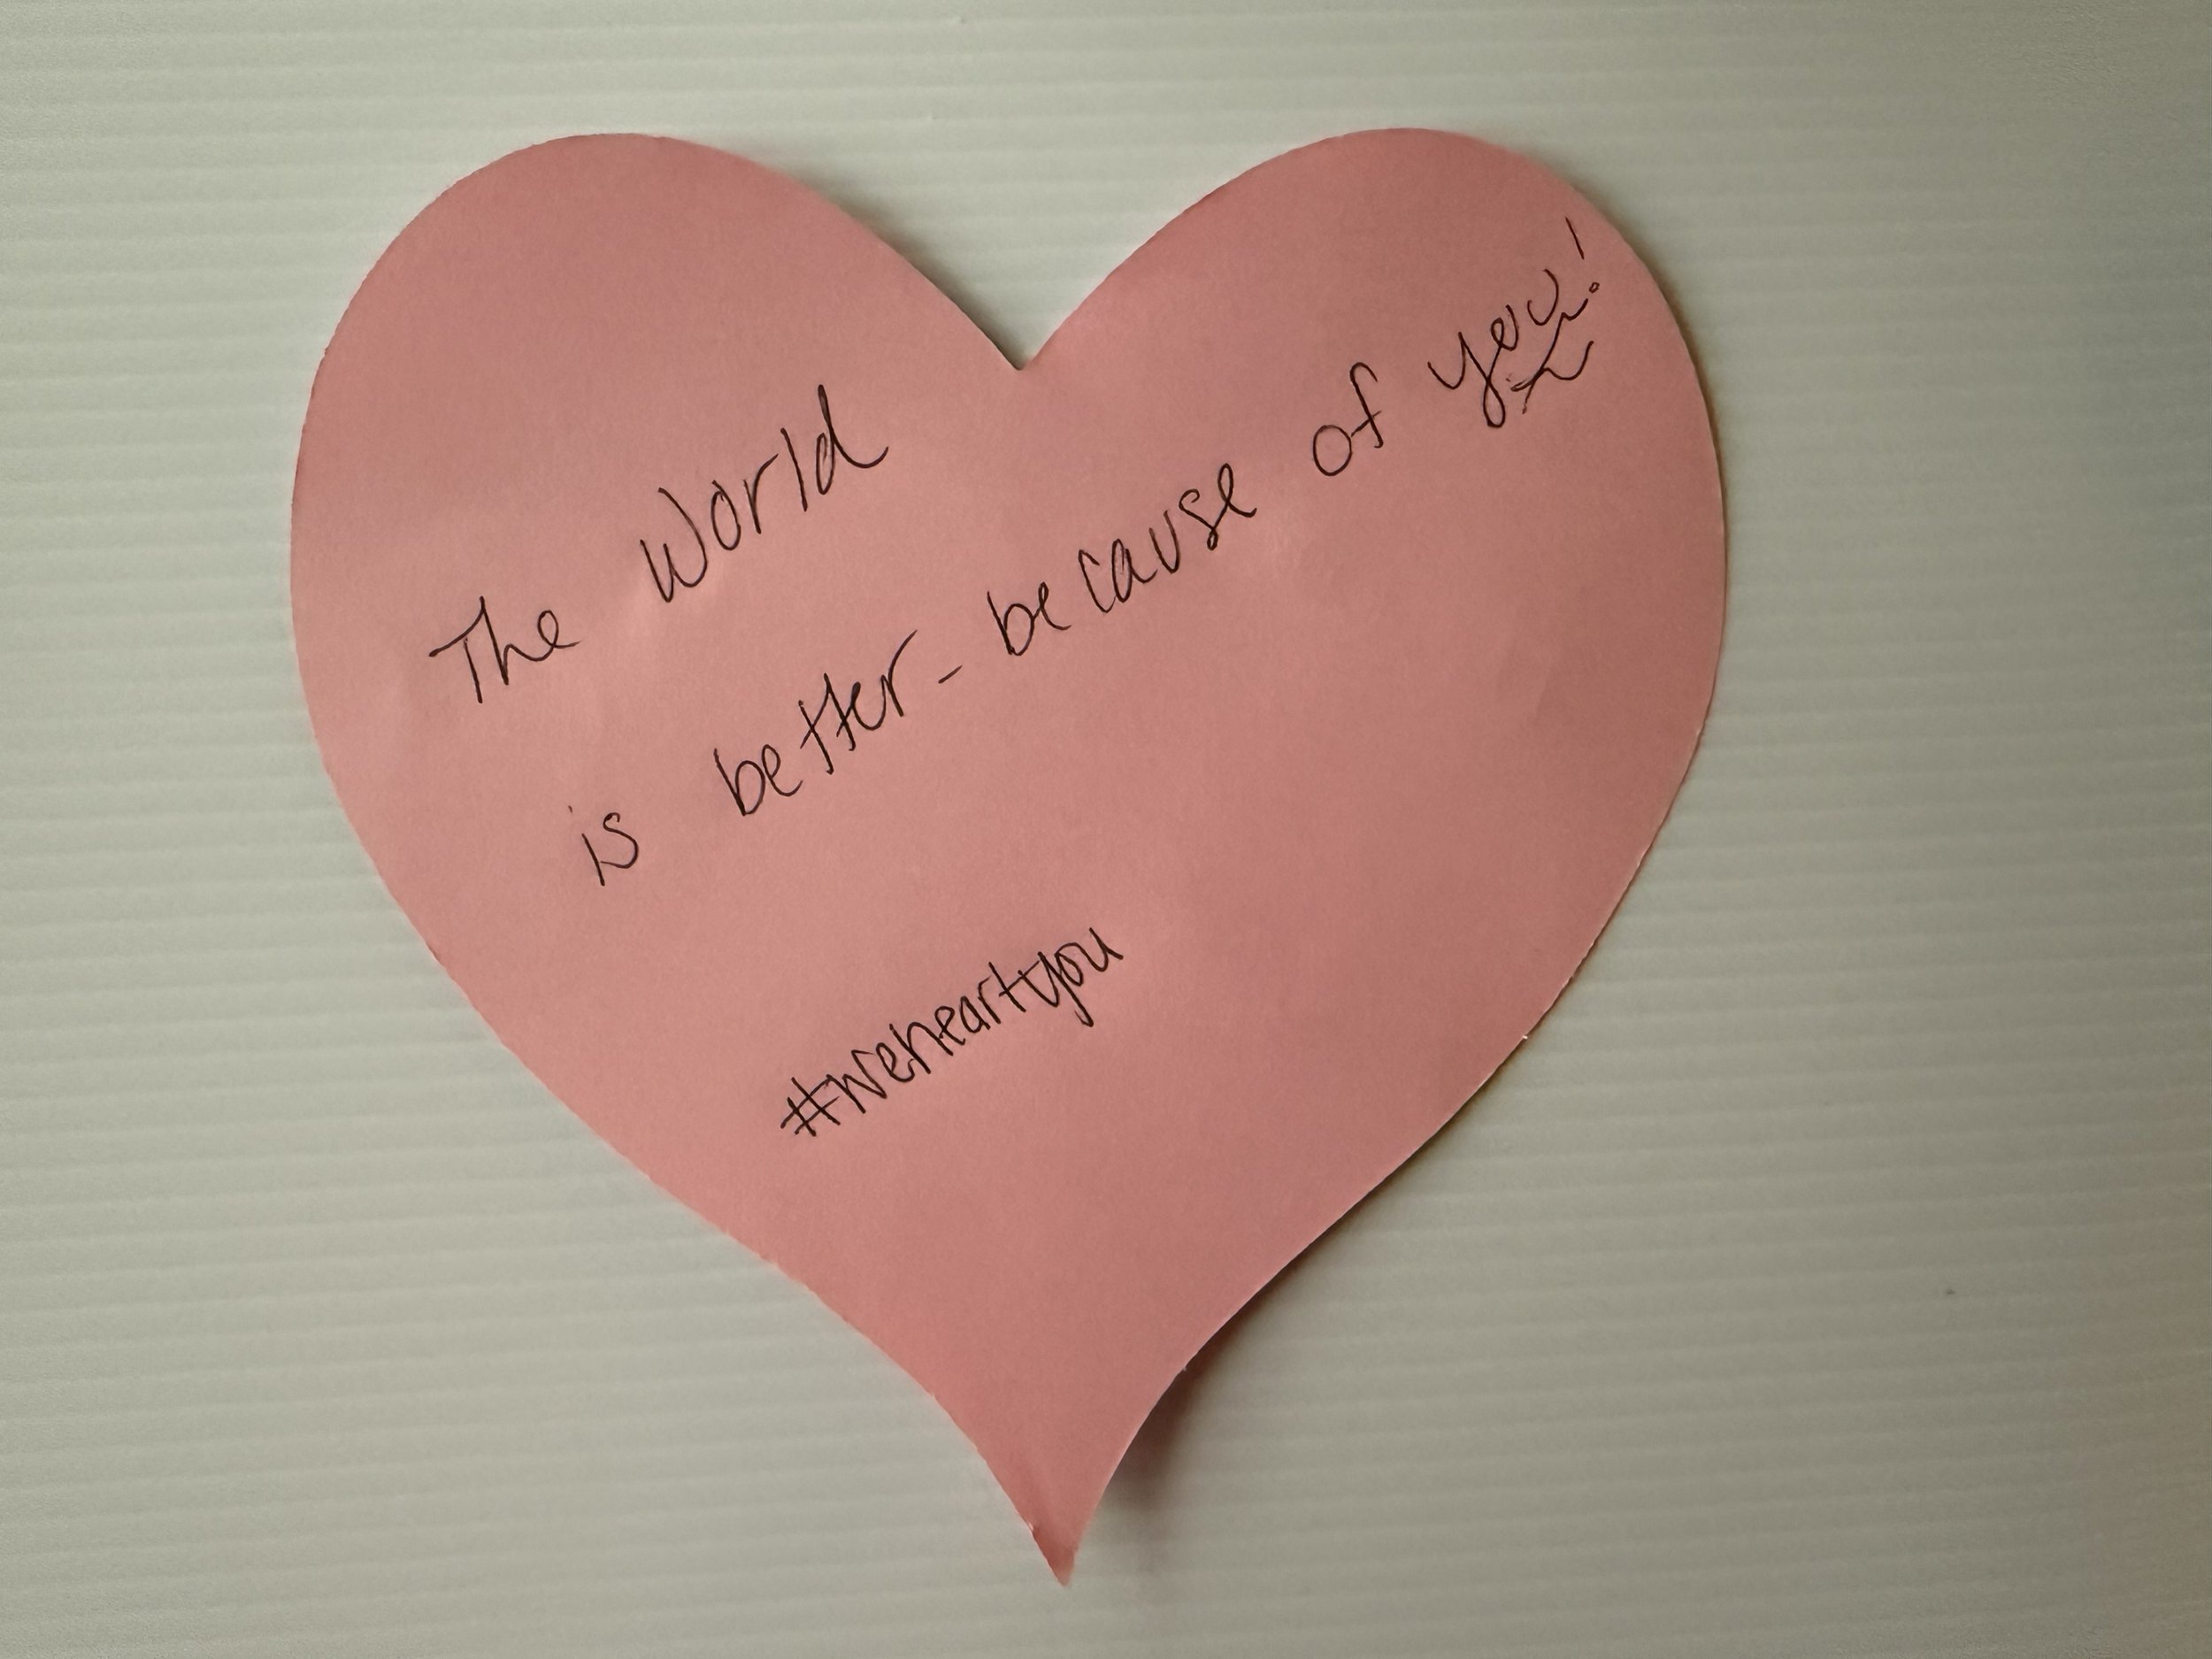 The World
is better - because of you!
#weheartyou